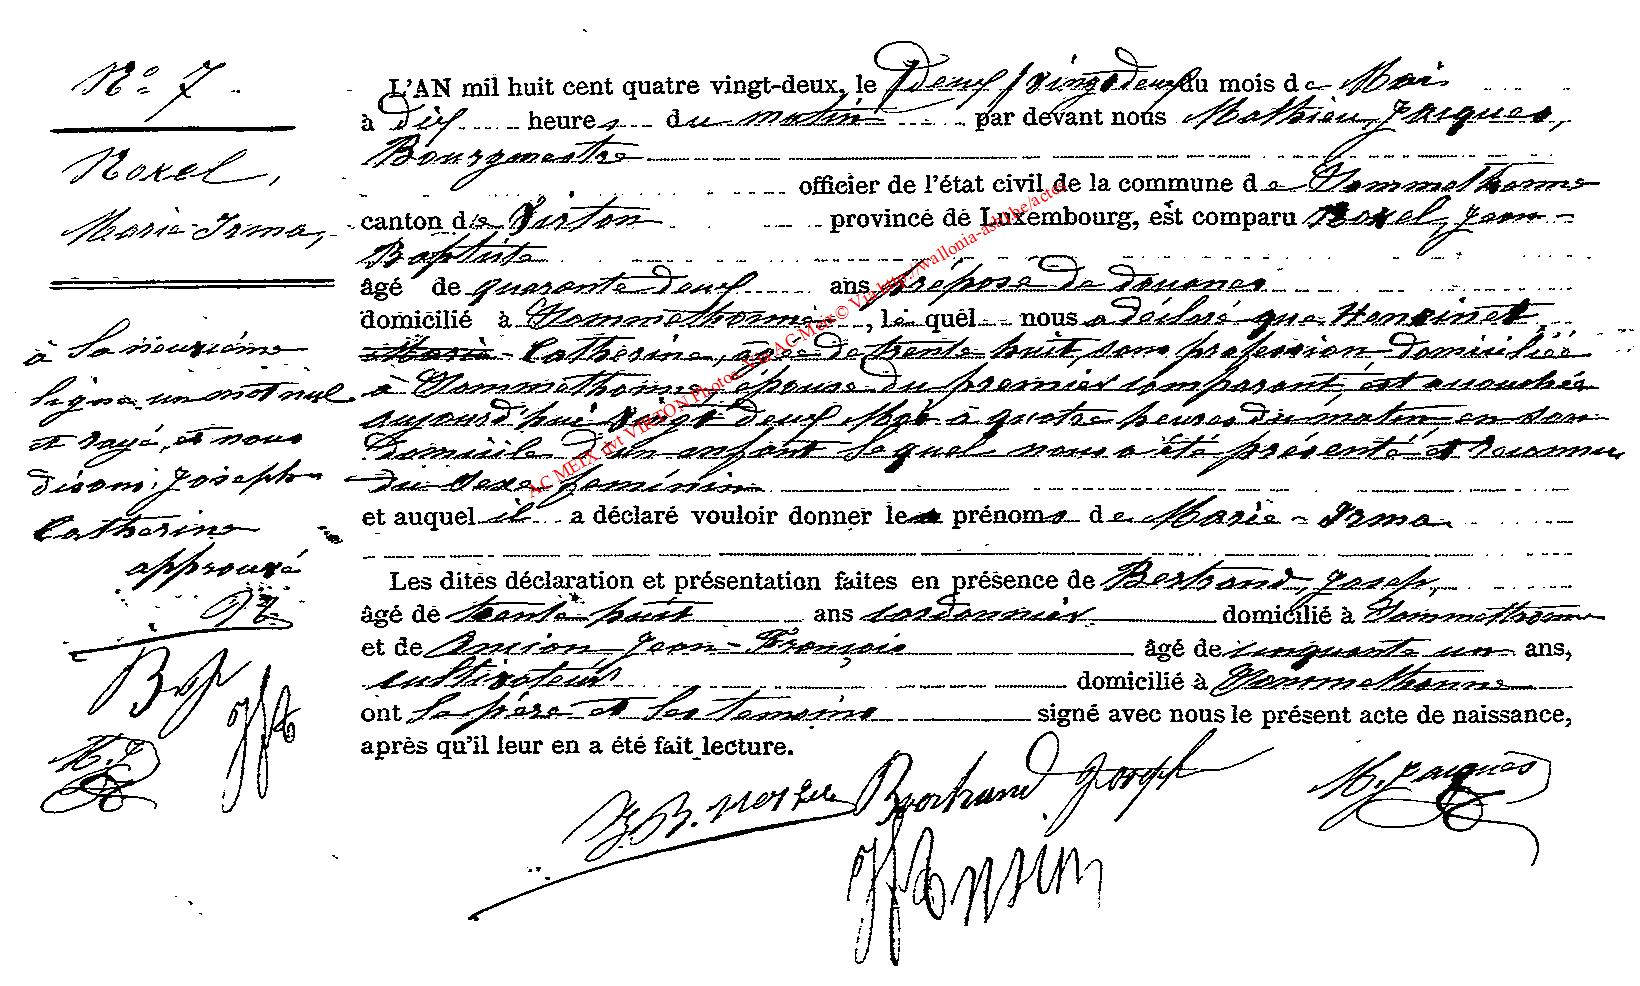 N° 7
Noxel,
Marie-Irma,
L'AN mil huit cent quatre vingt-deux, le vingt deux du mois de Mai
à Dix heures du matin par devant nous Mathieu, Jacques,
Bourgmestre
officier de l'état civil de la commune de Sommethonne
canton de Virton province de Luxembourg, est comparu Noxel, Jean-
Baptiste
âgé de quarante deux ans préposé de douanes
domicilié à Sommethonne, le quel nous a déclaré que Hensinet
Marie-Catherine, agée de trente huit, sans profession domiciliée
à Sommethonne, épouse du premier comparant, est accouchée
aujourd'hui vingt deux Mai à quatre heures du matin, en son
Domicile d'un enfant lequel nous a été présenté et reconnu
du sexe feminin
et auquel il a déclaré vouloir donner les prénoms de Marie-Irma
Les dites déclaration et présentation faites en présence de Bertrand, Josep,
âgé de trente huit ans cordonnier domicilié à Sommethonne
et de Ancion Jean-François âgé de cinquante un ans,
cultivateur domicilié à Sommethonne
ont le père et les temoins signé avec nous le présent acte de naissance,
après qu'il leur en a été fait lecture.
à la neuxième
ligne un mot nul
et rayé, et nous
disons: Joseph
Catherine
approuvé
J.B. Noxel
Bertrand Joseph
M. Jacques
AC MEIX dvt VIRTON Photos Via AC Meix © Via http://wallonia-asbl.be/actes